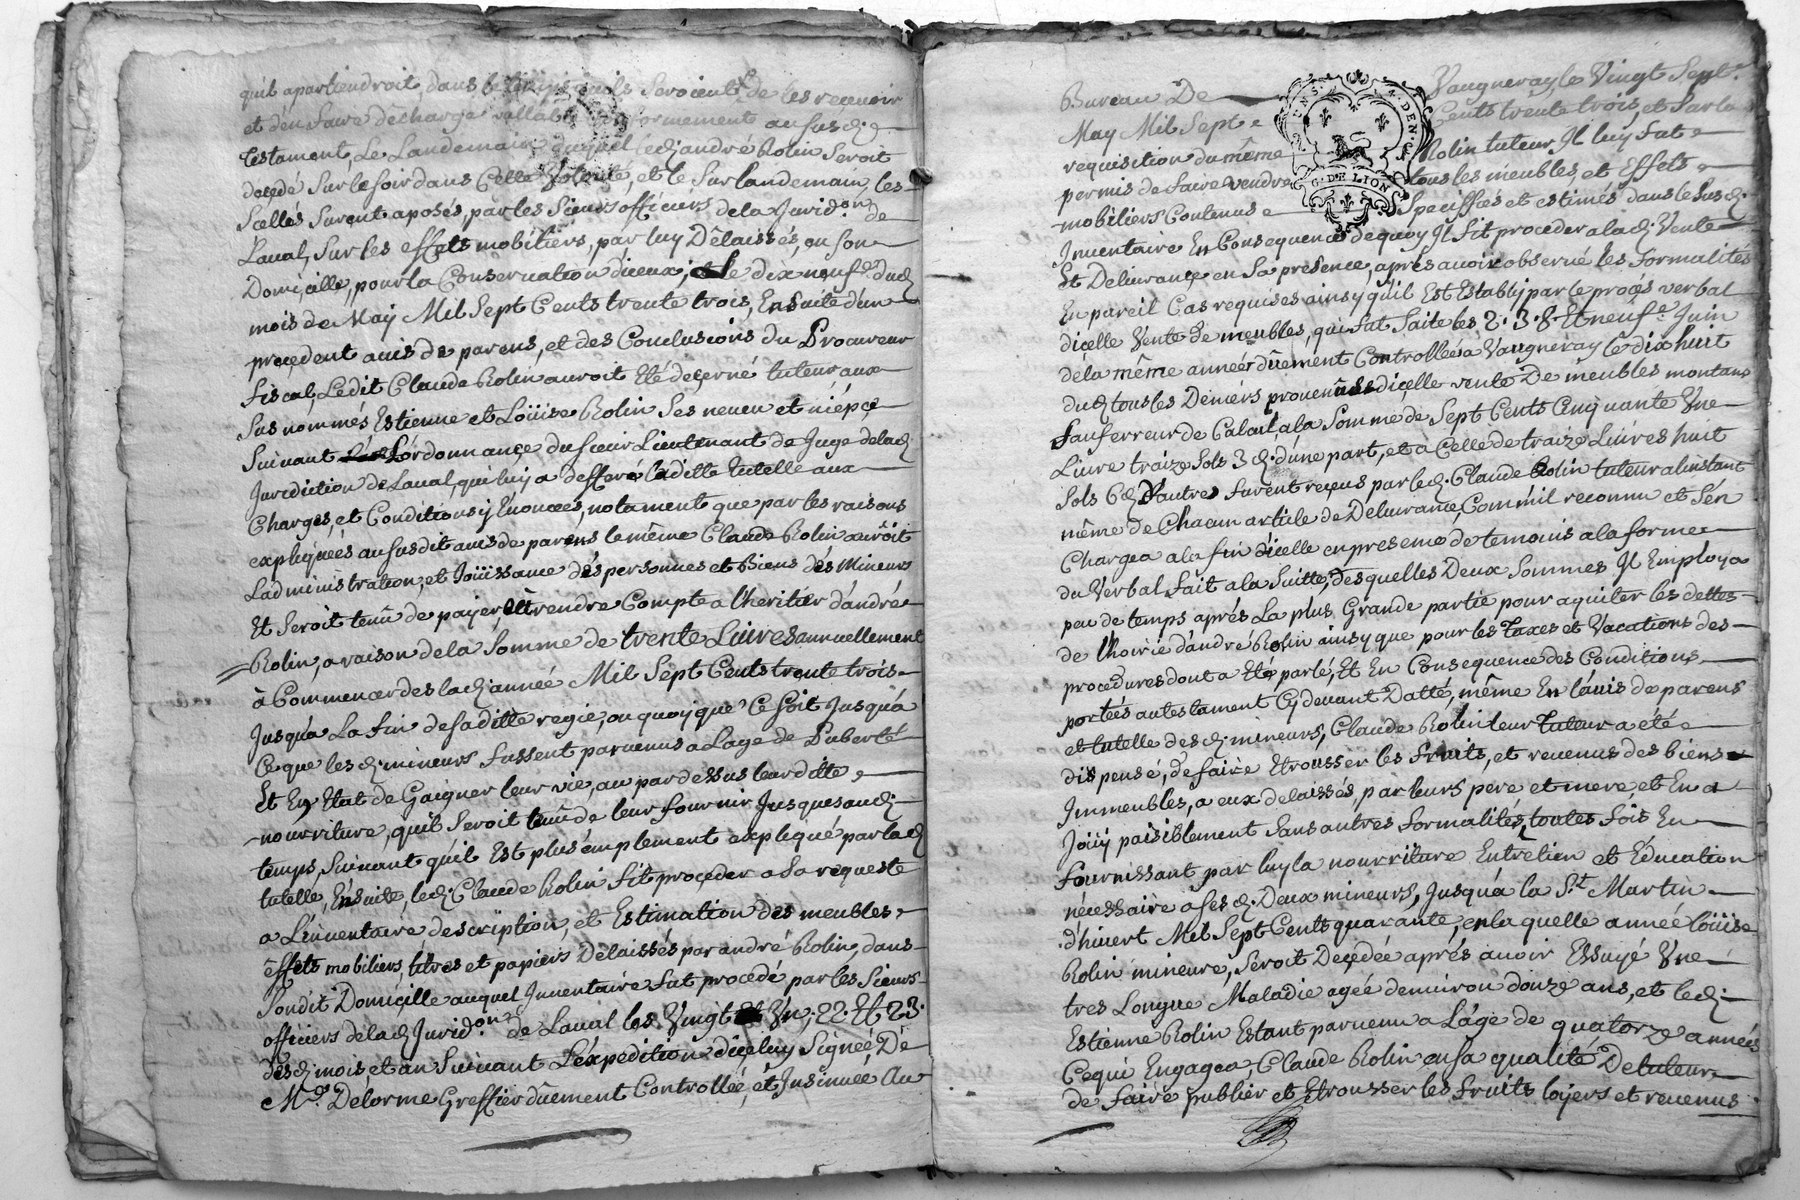 quil apartiendroit, dans le temps quils seroient de les recevoir
et d'en faire décharge vallable conformement au susd.
testament, Le Landemain duquel led. andré Rolin seroit
decedé sur le soir dans cette volonté, et le surlandemain, les
scellés furent aposés, par les sieurs officiers de la Jurid.on de
Laval, sur les effets mobiliers, par luy Délaissés, en son
Domicille, pour la Conservation diceux; et le dix neuf.e dud.
mois de May Mil Sept Cents trente trois, Ensuite d'un
precedent avis de parens, et des Conclusions du Procureur
fiscal, Ledit Claude Rolin auroit été décerné tuteur aux
sus nommés Estienne et Loüise Rolin ses neveu et niépce
suivant L'ordonnance du sieur Lieutenant de Juge delad.
Juridiction de Laval, qui luy a defferé laditte tutelle aux
Charges, et Conditions y Enoncées, notament que par les raisons
expliquées au susdit avis de parens le même Claude Rolin auroit
L'administration, et Joüissance dès personnes et Biens dés Mineurs
Et seroit tenû de payer, et rendre Compte a l'heritier d'andré
Rolin, a raison de la somme de trente Livres annuellement
à Commencer des lad. année Mil Sept Cents trente trois
Jusqu'a La fin de sa ditte regie, ou quoy que Ce soit Jusqu'à
Ce que les d. mineurs fussent parvenus a Lage de Puberté
Et En Etat de Gaigner leur vie, au par dessus leur ditte
nourriture, quil seroit tenû de leur fournir Jusques aud.
temps, suivant quil Est plus emplement expliqué par lad.
tutelle, Ensuite, led. Claude Rolin fit proceder a sa requeste
a L'inventaire description, et Estimation des meubles,
éffets mobiliers, titres et papiers Délaissés par andré Rolin, dans
sondit Domicille auquel Inventaire fut procedé par les sieurs
officiers de lad. Jurid.on de Laval les Vingt Un, 22. Et 23.
desd. mois et an suivant L'éxpedition diceluy signée, De
M.e Delorme Greffier dûement Controllée, et Insinuée Au
Bureau De Vaugneray le Vingt Sept.
May Mil Sept Cents trente trois, et Par la
requisition du même Rolin tuteur, Il luy fut
permis de faire vendre tous les méubles, et Effets
mobiliers Contenus Speciffiés et estimés dans le susd.
Inventaire En Consequence dequoy Il fit proceder a lad. Vente
Et Delivrance en sa presence, aprés avoir observé les formalités
En pareil Cas requises ainsy quil Est Establi par le procés verbal
dicelle Vente de meubles, qui fut faite les 2. 3. 8. Et neuf.e Juin
de la même année dûement Controllée a Vaugneray le dix huit
dud. tous les Deniers provenus dicelle vente De meubles montans
sauf erreur de Calcul, a la somme de Sept Cents Cinquante Une
Livre traize sols 3 d. d'une part, et a Celle de traize Livres huit
sols 6 d. D'autres furent reçus par led. Claude Rolin tuteur a linstant
même de Chacun article de Delivrance, Comm'il reconnu et s'en
Chargea a la fin dicelle en presence de temoins a la forme
du Verbal fait a la suitte, desquelles Deux sommes Il Employa
peu de temps aprés La plus Grande partie pour aquiter les dettes
de l'hoirie d'andré Rolin ainsy que pour les taxes et Vacations des
procedures dont a Eté parlé, Et En Consequence des Conditions
portées au testament Cy devant Datté, même En l'avis de parens
et tutelle des d. mineurs, Claude Rolin leur Tuteur a été
dispensé, de faire Etrousser les Fruits, et revenus des biens
Immeubles, a eux delaissés, par leurs pere et mere, et En a
Joüy paisiblement sans autres formalités, toutes fois En
fournissant par luy la nourriture Entretien et Education
nécessaire a ses d. Deux mineurs, Jusqu'a la S.t Martin
d'hivert Mil Sept Cents quarante, en la quelle année Loüise
Rolin mineure, seroit Decedée aprés avoir Essuyé Une
tres Longue Maladie agée denviron douze ans, et led.
Estienne Rolin Estant parvenu a Láge de quatorze années
Cequi Engagea, Claude Rolin en sa qualité De tuteur
de faire publier et Etrousser les fruits loyers et revenus
G. DE LION